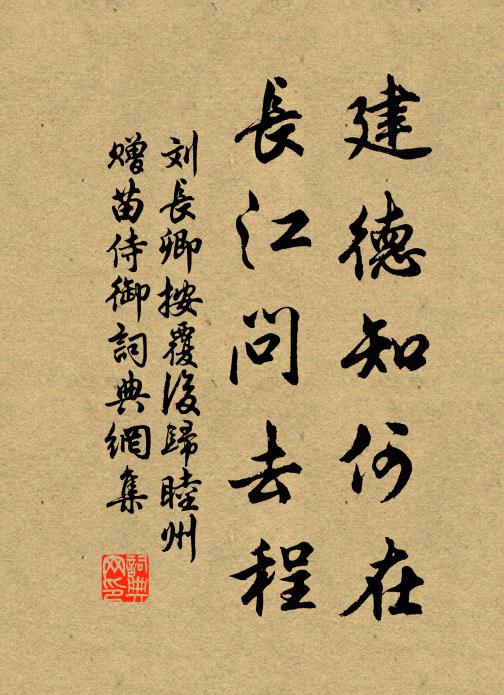 建德知何在
長江问去程
刘長卿按覆後歸睦州
赠苗侍御詞典網集
詞典
网印